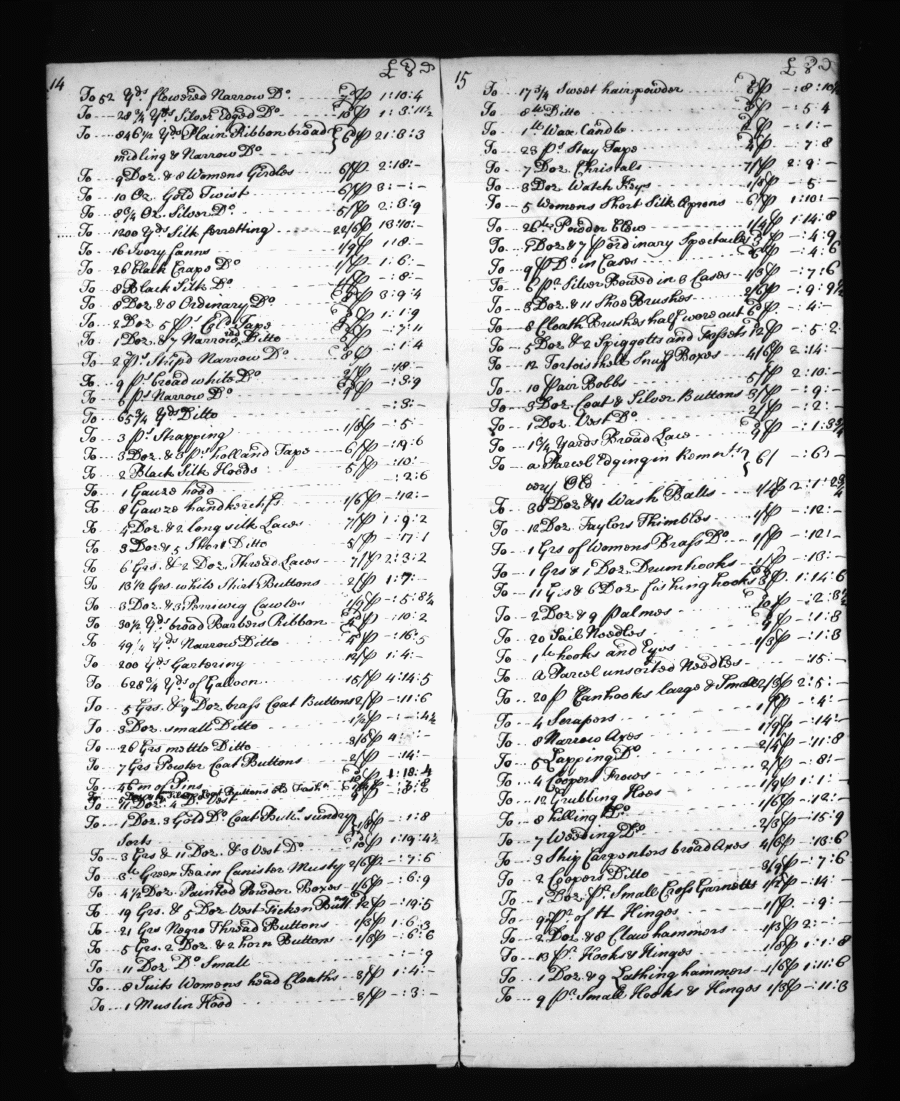 14
£ S D
To 52 Yds flowered Narrow Do 7d P 1:10:4
To 28 3/4 Yds Silver Edged Do 10 P 1:3:11½
To 846½ Yds Plain Ribbon broad 6 P 21:3:3
midling & Narrow Do
To 9 Doz & 8 Womens Girdles 6/P 2:18:-
To 10 Oz Gold Twist 6/P 3:-:-
To 8 3/4 Oz Silver Do 5/P 2:3:9
To 1200 Yds Silk ferretting 22/6 P 13:10:-
To 16 Ivory fanns 1/9 P 1:8:-
To 26 black Crape Do 1/P 1:6:-
To 8 Black Silk Do 1/P -:8:-
To 8 Doz & 8 Ordinary Do 8 P 3:9:4
To 2 Doz 5 Ps Cold Tape P 1:1:9
To 1 Doz & 7 Narrow Ditto P -:7:11
To 2 Ps Stripd Narrow Do 8 P -:1:4
To 9 Ps broad white Do 2/P -:18:-
To 6 Ps Narrow Do P -:3:9
To 65 3/4 Yds Ditto -:3:-
To 3 Ps Strapping 1/8 P -:5:-
To 3 Doz & 3 Ps holland Tape 6/P -:19:6
To 2 Black Silk Hoods 5/P -:10:-
To 1 Gauze hood -:2:6
To 8 Gawze handkerchfs 1/6 P -:12:-
To 4 Doz & 2 long silk Laces 7/P 1:9:2
To 3 Doz & 5 Short Ditto 5/P -:17:1
To 6 Grs & 2 Doz Thread Laces 7/P 2:3:2
To 13½ Grs white Shirt Buttons 2/P 1:7:-
To 3 Doz & 3 Perriwig Cawles 1/9 P -:5:8¼
To 30½ Yds broad Barbers Ribbon P -:10:2
To 49¼ Yds Narrow Ditto 4 P -:16:5
To 200 Yds Gartering 12/P 1:4:-
To 628 3/4 Yds of Galloon 15/P 4:14:5
To 5 Grs & 9 Doz brass Coat Buttons 2/P -:11:6
To 3 Doz small Ditto 1/6 P -:-:4½
To 26 Grs mettle Ditto 3/6 P 4
To 7 Grs Pewter Coat Buttons 2/P -:14:-
To 46 m of Pins 10 P 1:18:4
To Silver Coat Buttons old Fashn
To 11 Doz 4 Do Vest -:8:8
To 1 Doz 3 Gold Do Coat Buttns sundry 1/8 P -:1:8
Sorts
To 3 Grs & 11 Doz & 3 Vest Do 10 P 1:19:4½
To 3 lb Green Tea in Canister Musty 2/6 P -:7:6
To 4½ Doz Painted Powder Boxes 1/6 P -:6:9
To 19 Grs & 5 Doz Vest Ticken Butt 12 P -:19:5
To 21 Grs Negro Thread Buttons 1/3 P 1:6:3
To 5 Grs 2 Doz & 2 horn Buttons 1/3 P -:6:6
To 11 Doz Do Small -:-:9
To 8 Suits Womens head Cloaths 3/P 1:4:-
To 1 Muslin Hood 3/P -:3:-
15
£ S D
To 17 3/4 Sweet hair powder 6 P -:8:10½
To 8 lb Ditto P -:5:4
To 1 lb Wax Candle P -:1:-
To 23 Ps Stay Tape 4 P -:7:8
To 7 Doz Christals 7/P 2:9:-
To 3 Doz Watch Keys 1/8 P -:5:-
To 5 Womens Short Silk Aprons 6/P 1:10:-
To 26 lb Powder Blew 1/4 P 1:14:8
To 1 Doz & 7 P ordinary Spectacles 3 P -:4:9
To 9 P Do in Cases 6 P -:4:6
To 6 Ps Silver Bowed in 3 Cases 1/3 P -:7:6
To 3 Doz & 11 Shoe Brushes 2/6 P -:9:9½
To 8 Cloath Brushes half wore out 6d P -:4:-
To 5 Doz & 2 Spiggotts and fassets 12 P -:5:2
To 12 Tortoishell Snuff Boxes 4/6 P 2:14:-
To 10 Pair Bobbs 5/P 2:10:-
To 3 Doz Coat & Silver Buttons 3/P -:9:-
To 1 Doz Vest Do 2/P -:2:-
To 1 3/4 Yards Broad Lace 9 P -:1:3 3/4
To a Parcel Edging in Remnts 6/ -:6:-
very Old
To 30 Doz & 11 Wash Balls 1/4 P 2:1:2 3/4
To 12 Doz Taylors Thimbles 1/P -:12:-
To 1 Grs of Womens Brass Do 1/P -:12:-
To 1 Grs & 1 Doz Drumhooks 1/P -:13:-
To 11 Grs & 6 Doz fishing hooks 3 P 1:14:6
To 2 Doz & 9 palmes 10 P -:2:3½
To 20 Sail Needles P -:1:8
To 1 lb hooks and Eyes 1/3 P -:1:3
To a Parcel unsorted Needles -:15:-
To 20 P Canhooks large & Small 2/3 P 2:5:-
To 4 Scrapers 1/P -:4:-
To 8 Narrow Axes 1/9 P -:14:-
To 5 Lapping Do 2/4 P -:11:8
To 4 Coopers Frows 2/P -:8:-
To 12 Grubbing Hoes 1/9 P 1:1:-
To 8 hilling Do 1/6 P -:12:-
To 7 Weeding Do 2/3 P -:15:9
To 3 Ship Carpentors broad Axes 4/6 P -:13:6
To 2 Coopers Ditto 3/9 P -:7:6
To 1 Doz Ps Small Cross Garnetts 1/2 P -:14:-
To 9 Ps of H Hinges 1/P -:9:-
To 2 Doz & 8 Claw hammers 1/3 P 2:-:-
To 13 Ps Hooks & Hinges 1/8 P 1:1:8
To 1 Doz & 9 Lathing hammers 1/6 P 1:11:6
To 9 Ps Small Hooks & Hinges 1/3 P -:11:3